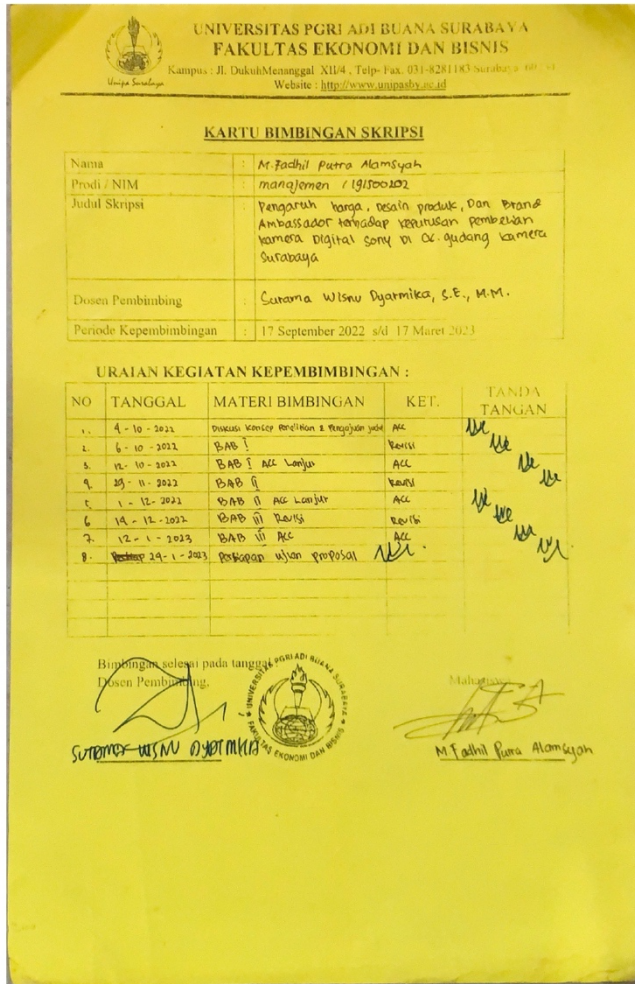 UNIVERSITAS PGRI ADI BUANA SURABAYA
FAKULTAS EKONOMI DAN BISNIS
Kampus : Jl. DukuhMenanggal XII/4 , Telp- Fax. 031-8281183 Surabaya
Website : http://www.unipasby.ac.id
Unipa Surabaya
KARTU BIMBINGAN SKRIPSI
Nama : M. Fadhil Putra Alamsyah
Prodi / NIM : manajemen / 191500202
Judul Skripsi : Pengaruh harga, Desain produk, Dan Brand
Ambassador terhadap keputusan pembelian
kamera Digital Sony Di CV. gudang kamera
Surabaya
Dosen Pembimbing : Sutama Wisnu Dyatmika, S.E., M.M.
Periode Kepembimbingan : 17 September 2022 s/d 17 Maret 2023
URAIAN KEGIATAN KEPEMBIMBINGAN :
NO TANGGAL MATERI BIMBINGAN KET. TANDA TANGAN
1. 4 - 10 - 2022 Diskusi Konsep Penelitian & Pengajuan judul Acc
2. 6 - 10 - 2022 BAB I Revisi
3. 12 - 10 - 2022 BAB I Acc Lanjut Acc
4. 29 - 11 - 2022 BAB II Revisi
5. 1 - 12 - 2022 BAB II Acc Lanjut Acc
6 14 - 12 - 2022 BAB III Revisi Revisi
7. 12 - 1 - 2023 BAB III Acc Acc
8. 24 - 1 - 2023 Persiapan ujian proposal
Bimbingan selesai pada tanggal
Dosen Pembimbing, Mahasiswa
UNIVERSITAS PGRI ADI BUANA SURABAYA
FAKULTAS EKONOMI DAN BISNIS
SUTAMA WISNU DYATMIKA M Fadhil Putra Alamsyah